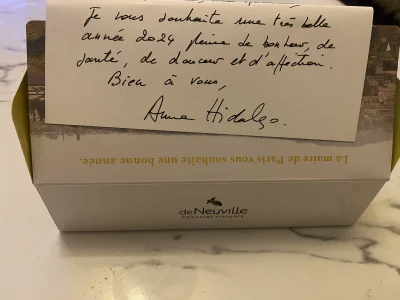 Je vous souhaite une très belle
année 2024 pleine de bonheur, de
santé, de douceur et d'affection.
Bien à vous,
Anne Hidalgo.
La maire de Paris vous souhaite une bonne année.
deNeuville
chocolat français